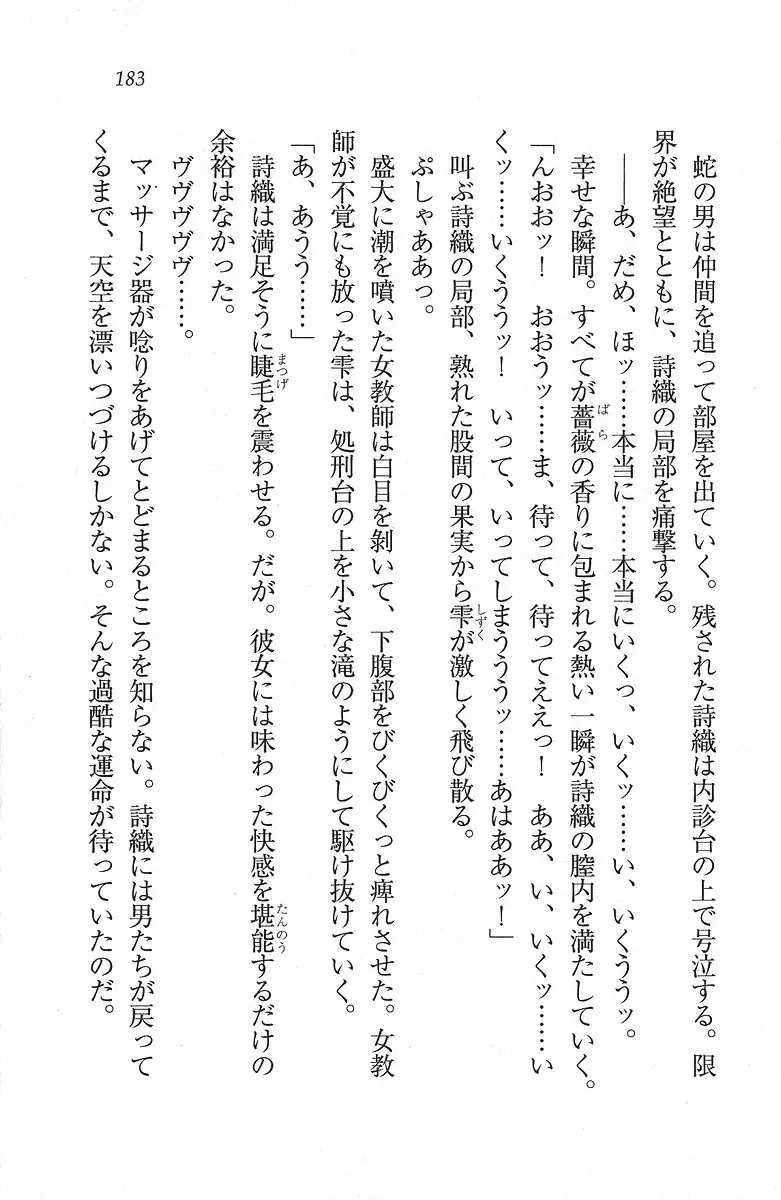 183
蛇の男は仲間を追って部屋を出ていく。残された詩織は内診台の上で号泣する。限
界が絶望とともに、詩織の局部を痛撃する。
――あ、だめ、ほッ……本当に……本当にいくっ、いくッ……い、いくううッ。
幸せな瞬間。すべてが薔薇の香りに包まれる熱い一瞬が詩織の膣内を満たしていく。
「んおおッ！　おおうッ……ま、待って、待ってええっ！　ああ、い、いくッ……い
くッ……いくううッ！　いって、いってしまうううッ……あはああッ！」
叫ぶ詩織の局部、熟れた股間の果実から雫が激しく飛び散る。
ぷしゃああっ。
盛大に潮を噴いた女教師は白目を剝いて、下腹部をびくびくっと痺れさせた。女教
師が不覚にも放った雫は、処刑台の上を小さな滝のようにして駆け抜けていく。
「あ、あうう……」
詩織は満足そうに睫毛を震わせる。だが。彼女には味わった快感を堪能するだけの
余裕はなかった。
ヴヴヴヴヴ……。
マッサージ器が唸りをあげてとどまるところを知らない。詩織には男たちが戻って
くるまで、天空を漂いつづけるしかない。そんな過酷な運命が待っていたのだ。